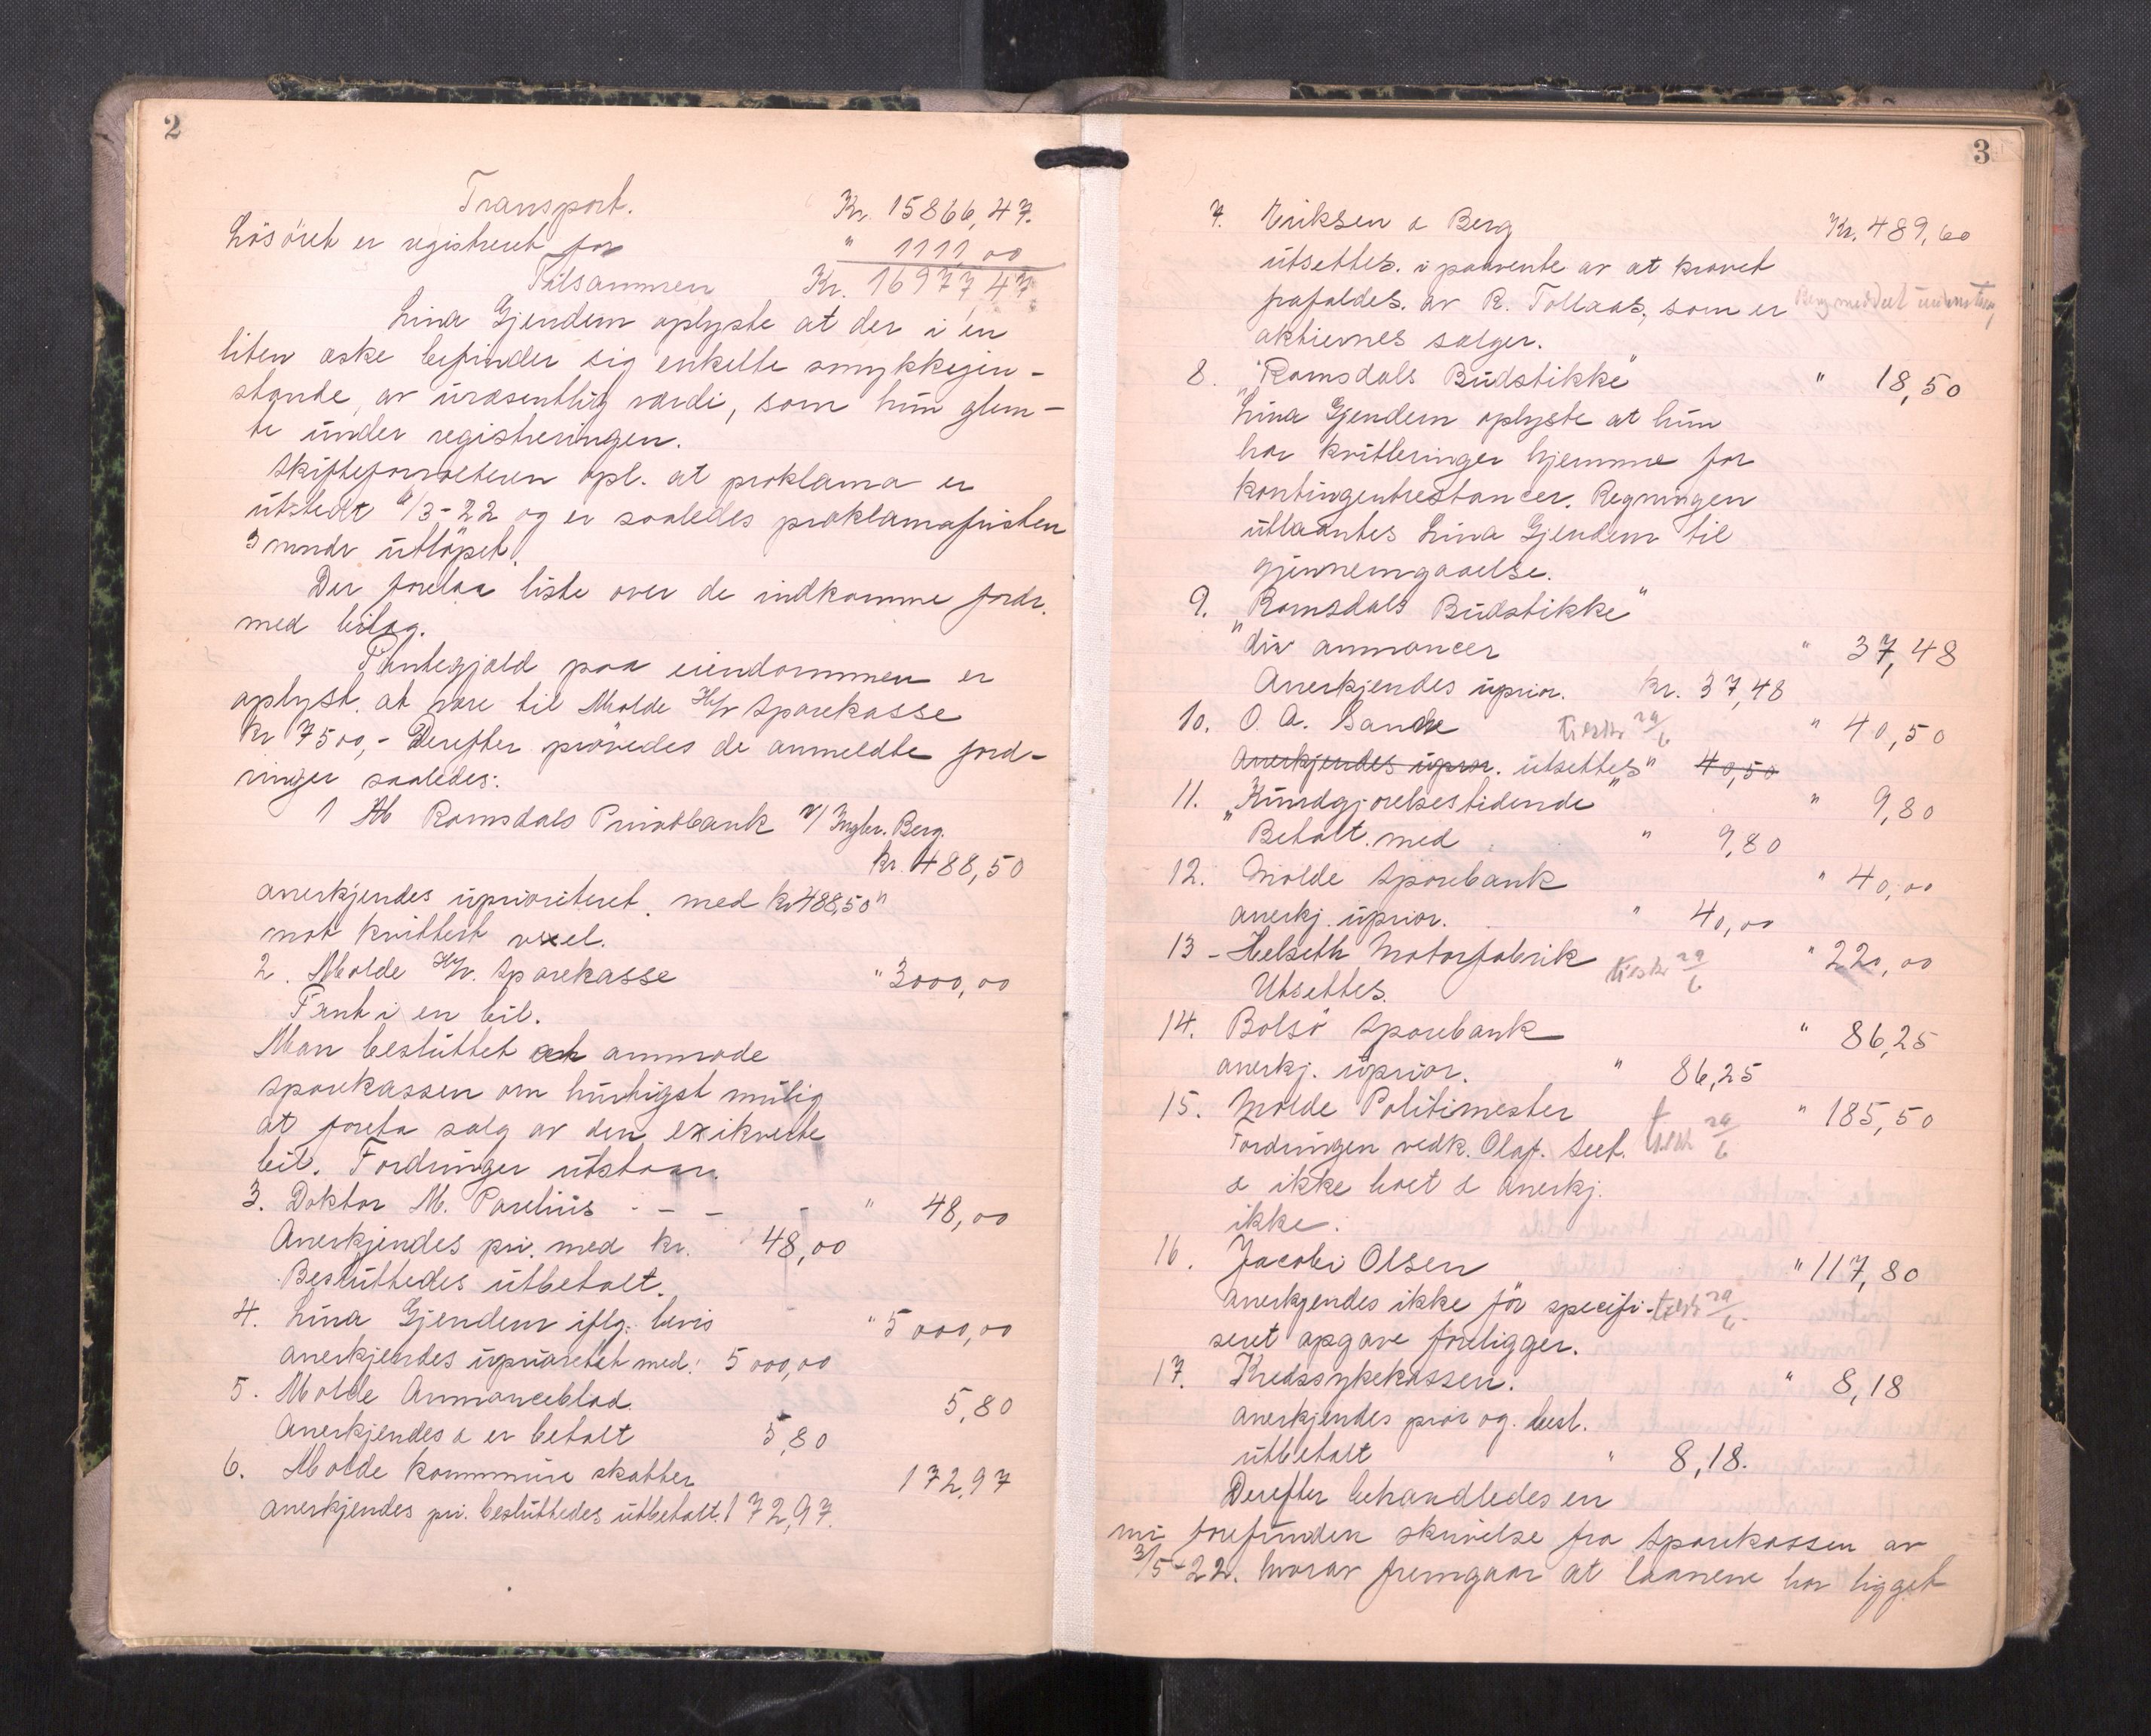 2
Transport. Kr. 15866,47.
Lösöret er registreret for " 1111,00
Tilsammen Kr. 16977,47
Lina Gjendem oplyste at der i en
liten æske befinder sig enkelte smykkegjen-
stande, av uvæsentlig værdi, som hun glem-
te under registreringen.
Skifteforvalteren opl. at proklama er
utstedt /3-22 og er saaledes proklamafristen
3 mndr utlöpet.
Der forelaa liste over de indkomne fordr.
med bilag.
Pantegjæld paa eiendommen er
oplyst at være til Molde H/v Sparekasse
Kr 7500,- Derefter prövedes de anmeldte ford-
ringer saaledes:
1 Ab Romsdals Privatbank v/ Ingbr. Berg.
kr. 488,50
anerkjendes uprioriteret. med kr 488,50"
mot kvittert vexel.
2. Molde H/v. Sparekasse " 3000,00
Pant i en bil.
Man besluttet at anmode
sparekassen om hurtigst mulig
at foreta salg av den exikverte
bil. Fordringer utstaar.
3. Doktor M. Parelius - - - - " 48,00
Anerkjendes pri. med kr. 48,00
Besluttedes utbetalt.
4. Lina Gjendem iflg. bevis " 5000,00
anerkjendes uprioritet med: 5000,00
5. Molde Annonceblad 5,80
Anerkjendes & er betalt 5,80
6. Molde kommune skatter 172,97
anerkjendes pri. besluttedes utbetalt. 172,97.
3
7. Eriksen & Berg Kr. 489,60
utsettes. i paavente av at kravet
frafaldes. av R. Tollaas, som er Berg meddelt
aktiernes sælger.
8. "Romsdals Budstikke" " 18,50
Lina Gjendem oplyste at hun
har kvitteringer hjemme for
kontingentrestancer. Regningen
utlaantes Lina Gjendem til
gjennemgaaelse.
9. "Romsdals Budstikke"
div annoncer " 37,48
Anerkjendes uprior. kr. 37,48
10. O. A. tilskr 29/6 " 40,50
Anerkjendes uprior. utsettes " 40,50
11. "Kundgjørelsestidende" " 9,80
Betalt. med " 9,80
12. Molde Sparebank " 40,00
anerkj. uprior. " 40,00
13 - Helseth Motorfabrik tilskr 29/6 " 220,00
Utsettes.
14. Bolsö Sparebank " 86,25
anerkj. uprior. " 86,25
15. Molde Politimester " 185,50
Fordringen vedk. Olaf. Sæt. tilskr 29/6
& ikke boet & anerkj.
ikke.
16. Jacobi Olsen " 117,80
Anerkjendes ikke för specifi- tilskr 29/6
seret opgave foreligger.
17. Kredssykekassen. " 8,18
anerkjendes prior og. besl.
utbetalt " 8,18.
Derefter behandledes en
nu forefunden skrivelse fra Sparekassen av
3/5-22. hvorav fremgaar at laanene har ligget